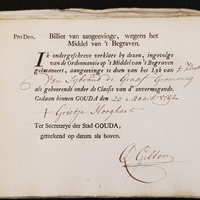 Pro Deo. Billiet van aangeevinge, wegens het
Middel van 't Begraven.
Ik ondergeschreve verklare by dezen, ingevolge
van de Ordonnantie op 't Middel van 't Begraven
geëmaneert, aangevinge te dien van het Lyk van
Van Sybrand de Graaf
als gehoorende onder de Classis van d' onvermogende.
Gedaan binnen GOUDA den 20 Maart 1792
Grietje Hooghart
Ter Secretarye der Stad GOUDA,
getrokken op datum als boven.